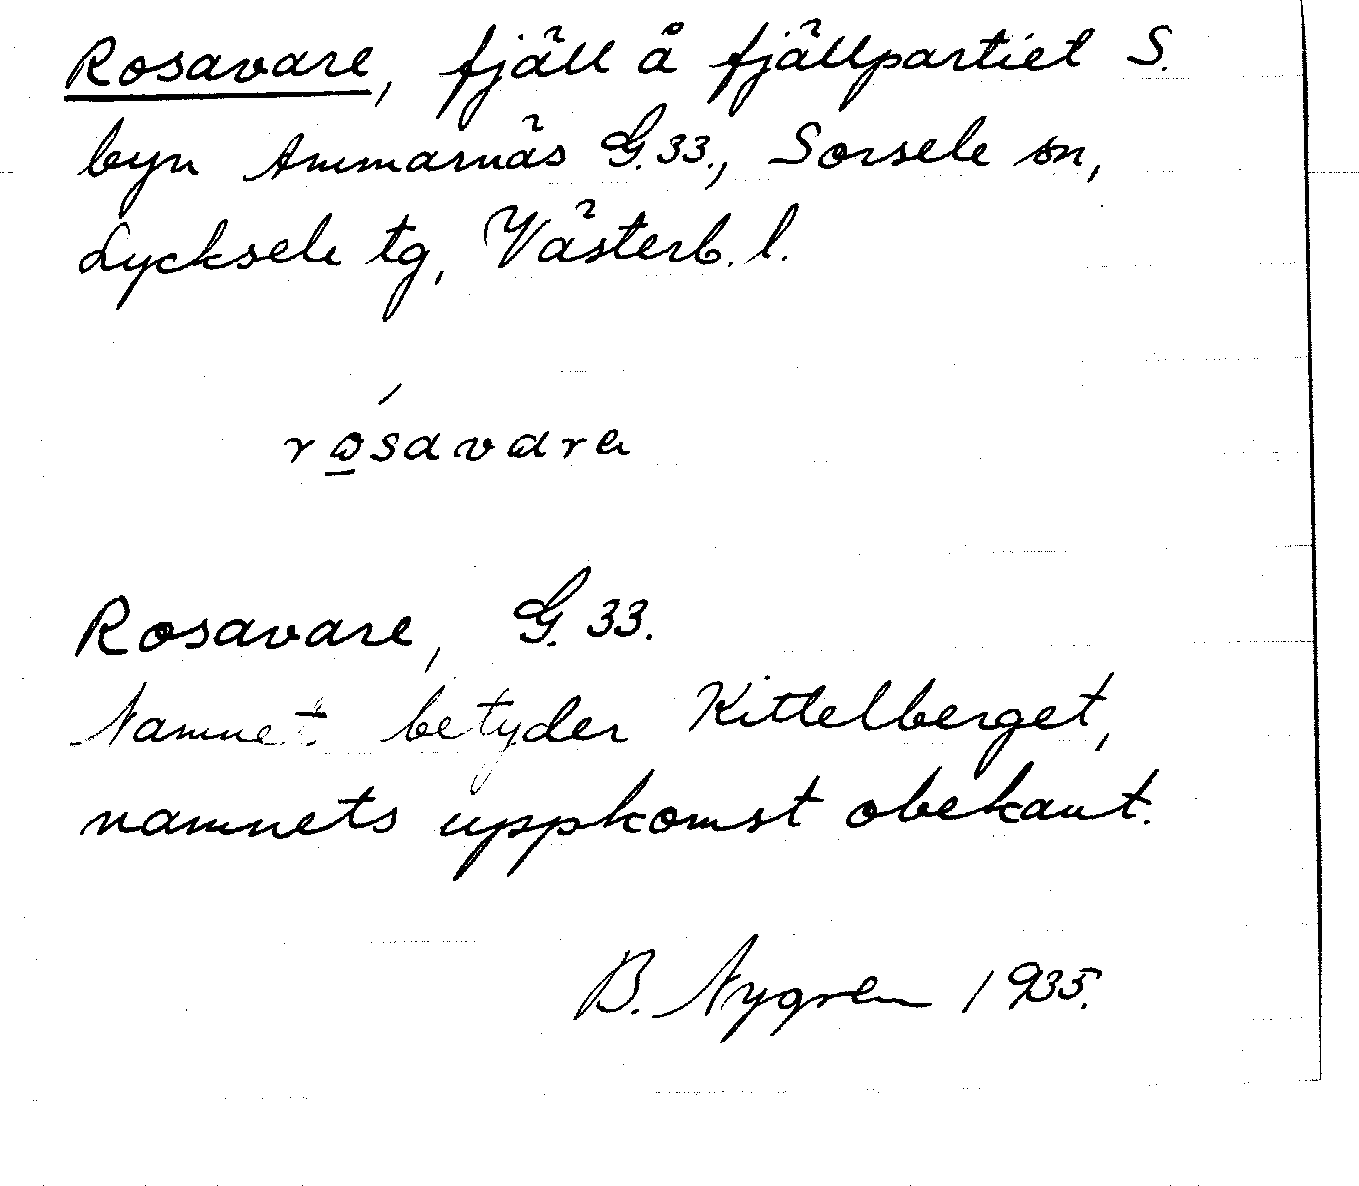 Rosavare, fjäll å fjällpartiet S.
byn Ammarnäs G.33., Sorsele sn,
Lycksele tg, Västerb. l.
ro̱´savara
Rosavare, G.33.
Namnet betyder Kittelberget,
namnets uppkomst obekant.
B. Nygren 1935.